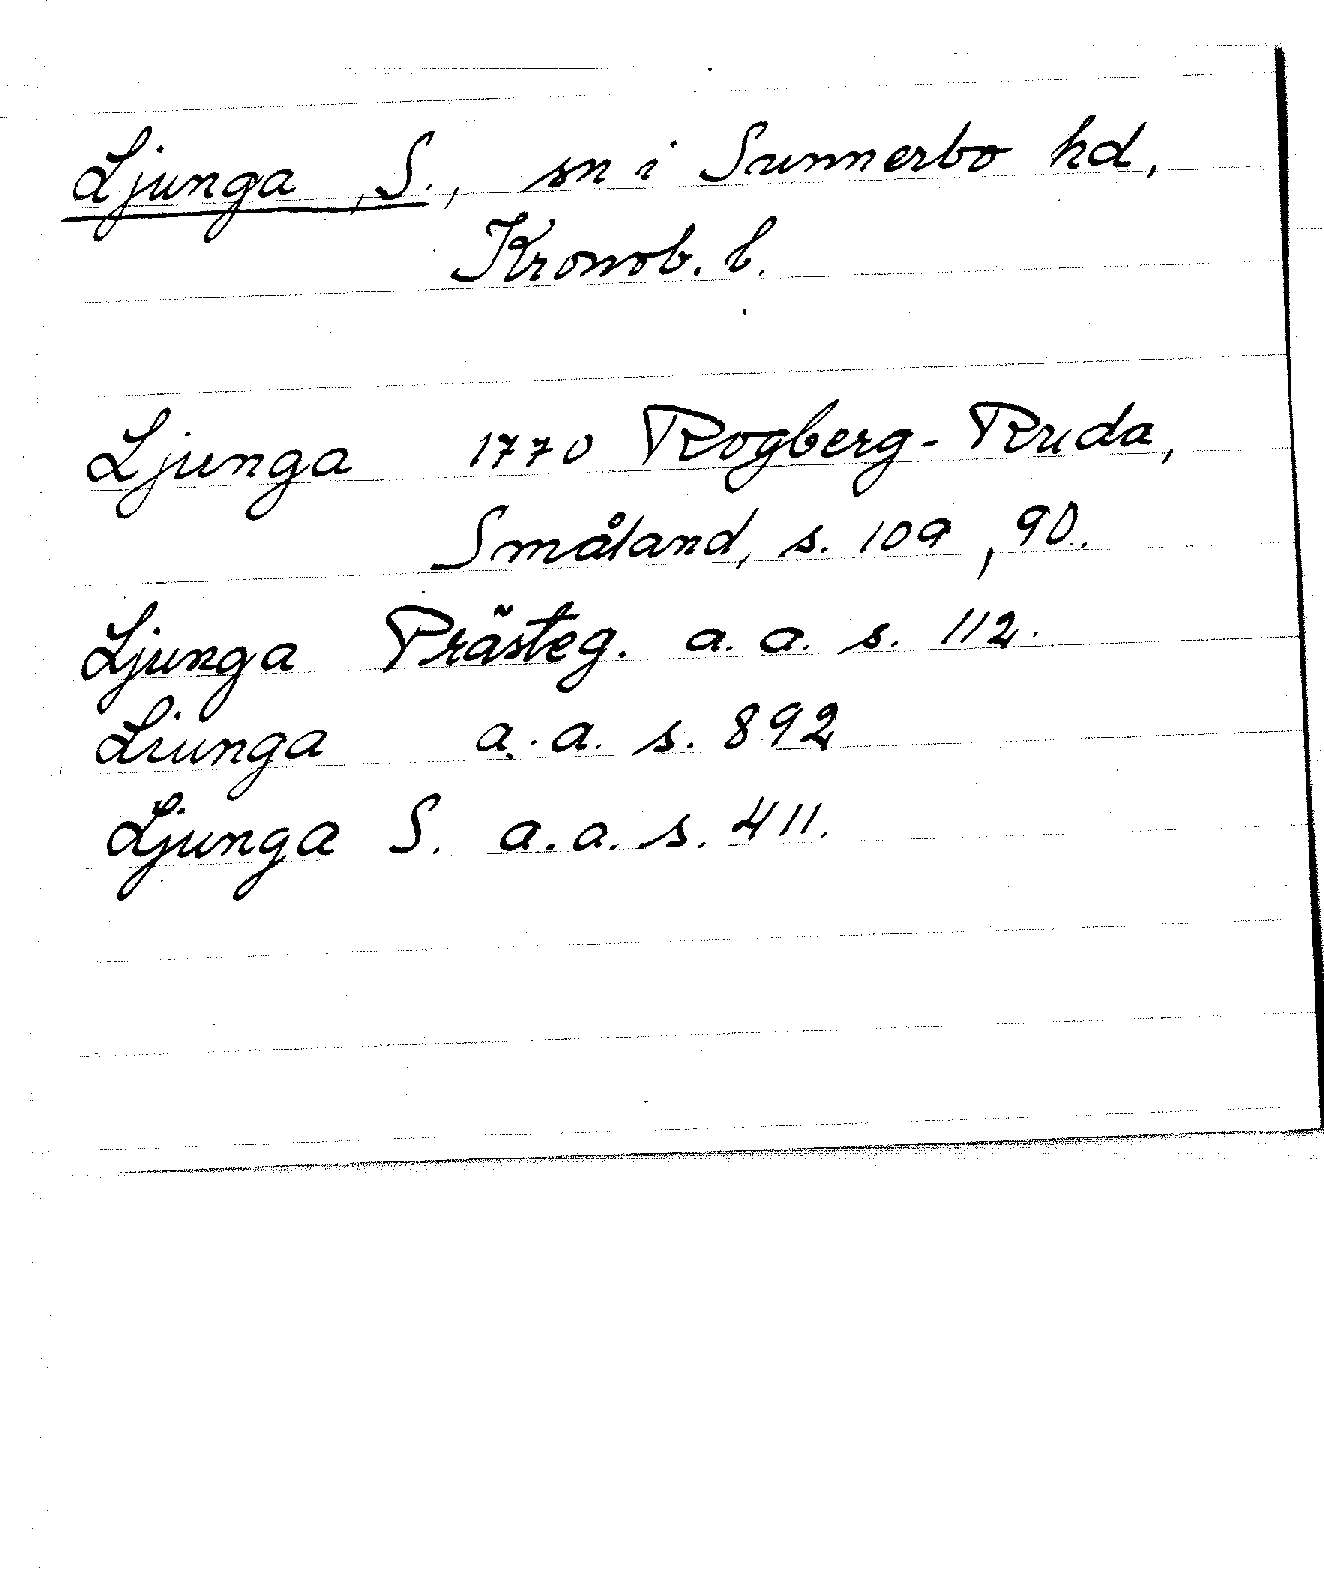 Ljunga, S., sn i Sunnerbo hd,
Kronob. l.
Ljunga 1770 Rogberg-Ruda,
Småland, s. 109, 90.
Ljunga Prästeg. a. a. s. 112.
Liunga a. a. s. 892
Ljunga S. a. a. s. 411.